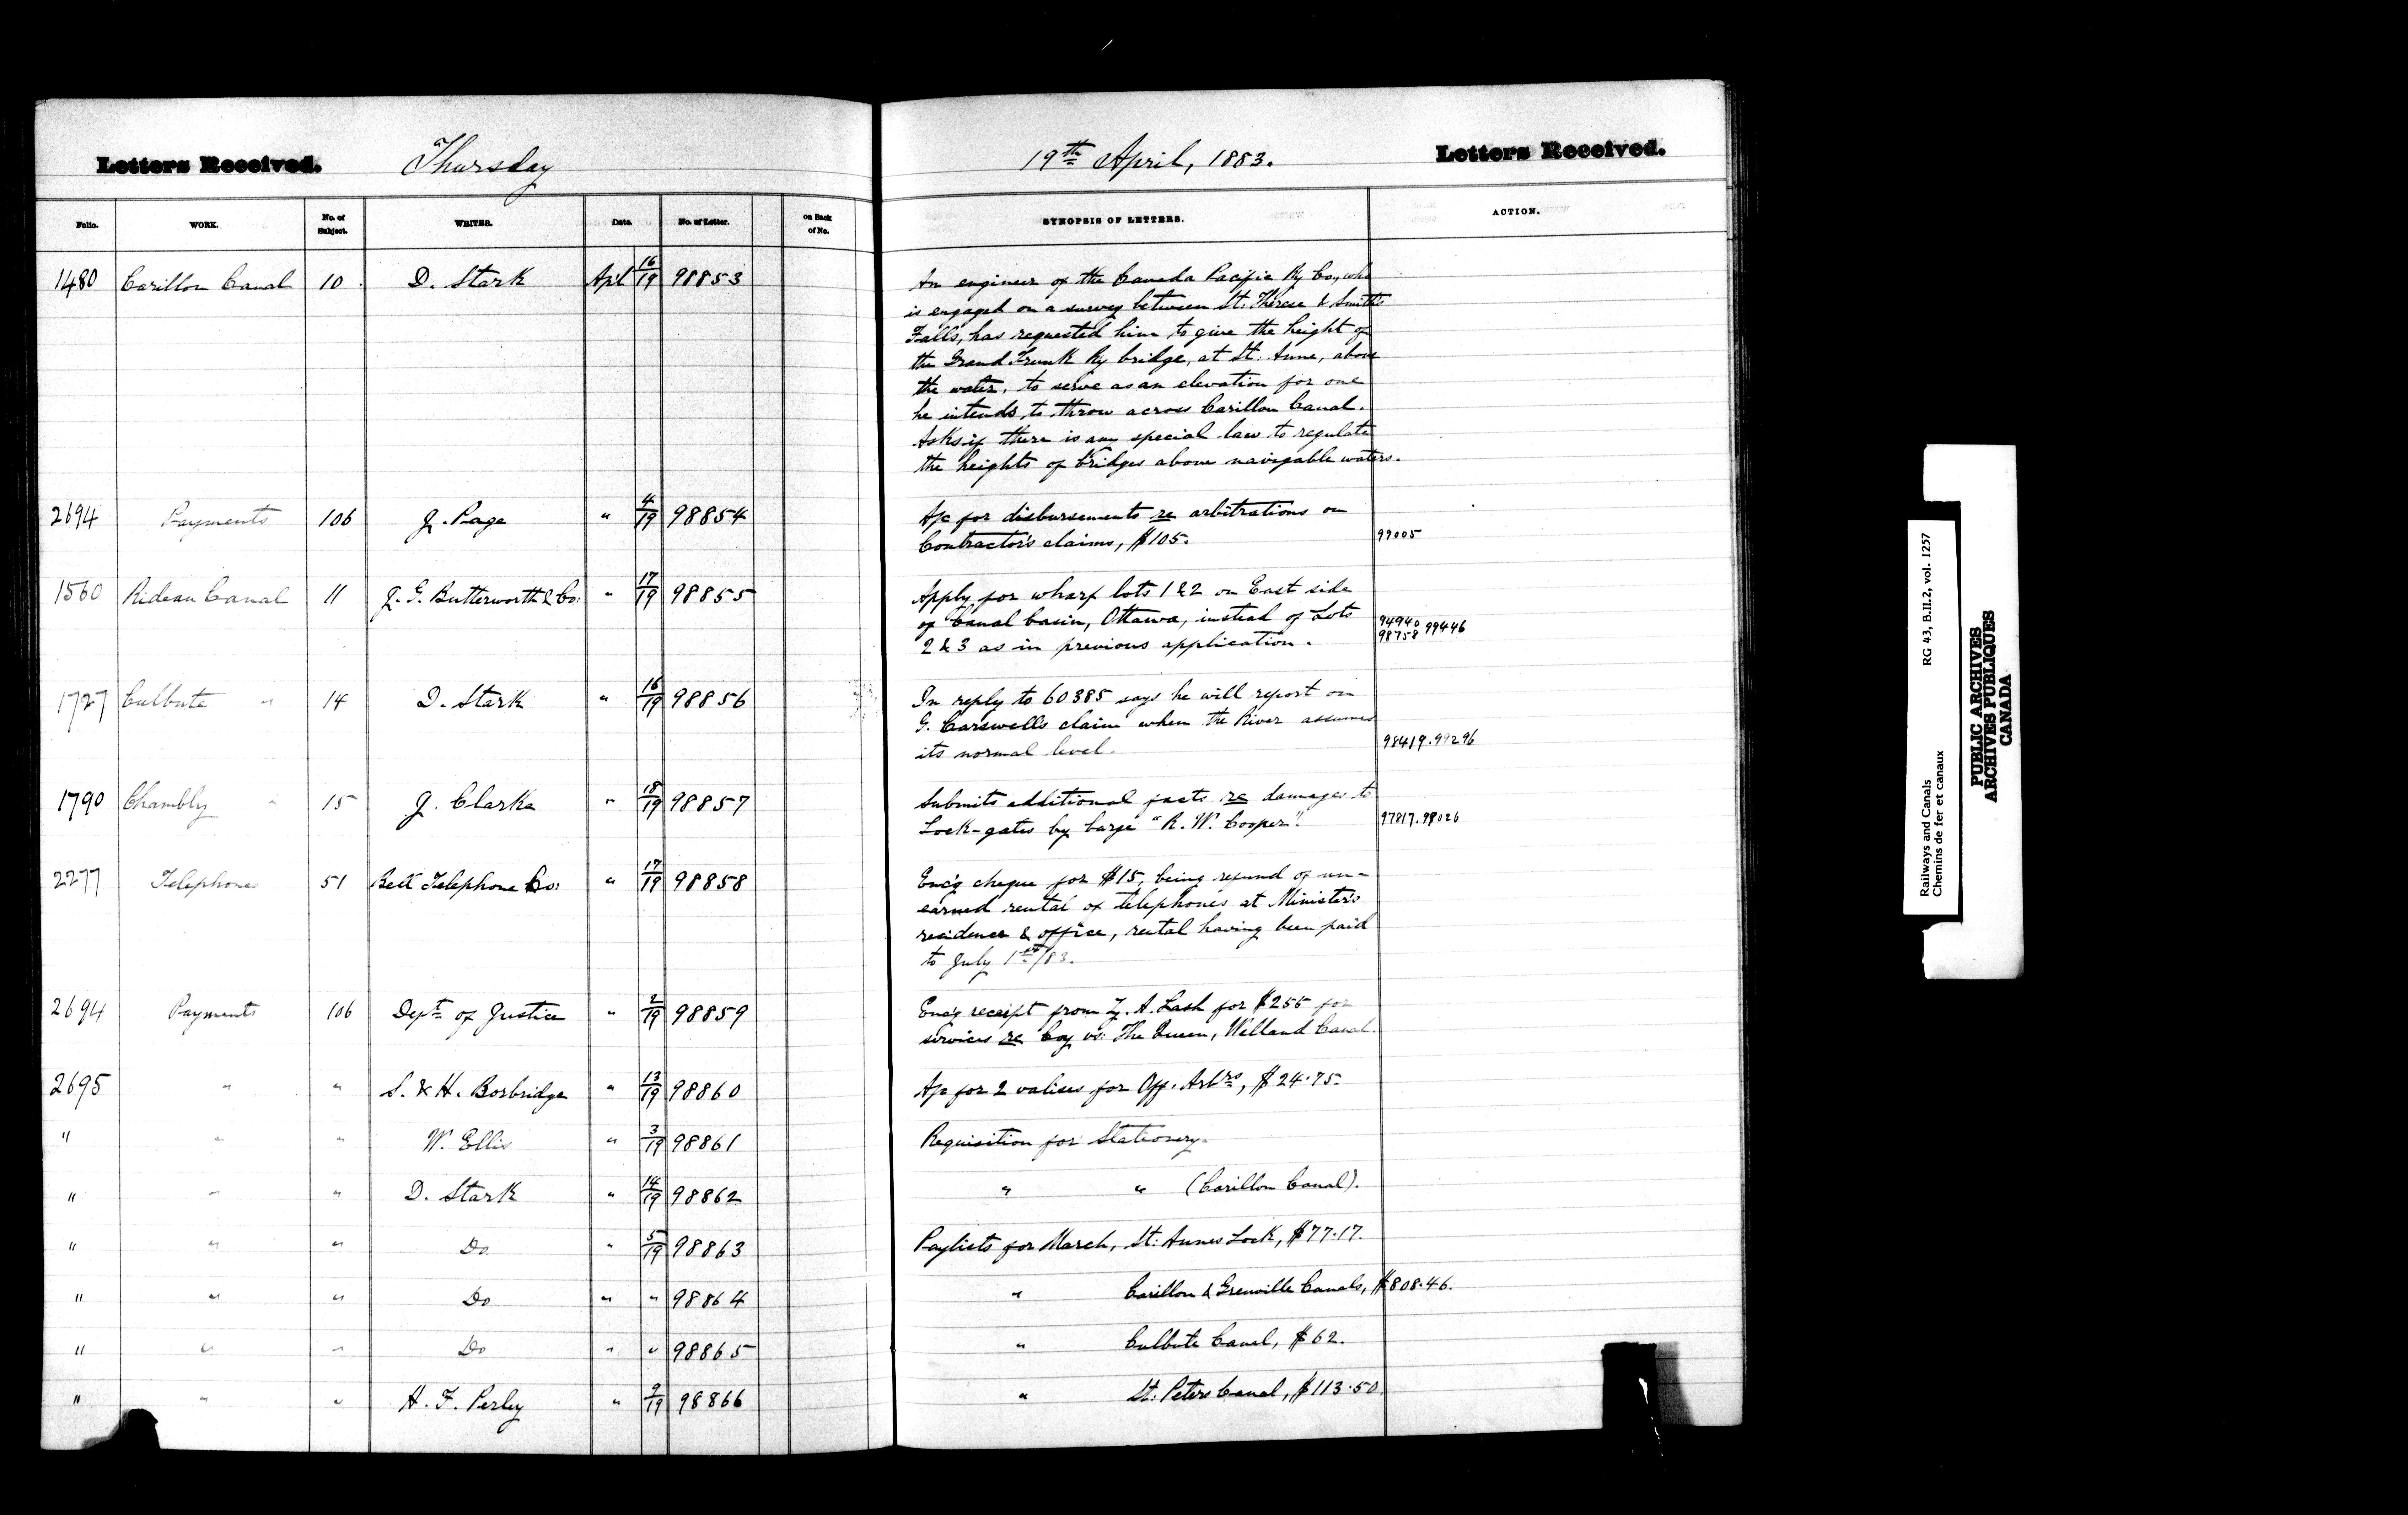 Letters Received. Thursday 19th April, 1883. Letters Received.
Folio. WORK. No. of Subject. WRITER. Date. No. of Letter. on Back of No. SYNOPSIS OF LETTERS. ACTION.
1480 Carillon Canal 10 D. Stark Apl 16/19 98853 An engineer of the Canada Pacific Ry Co., who
is engaged on a survey between St. Thérese & Smith's
Falls, has requested him to give the height of
the Grand Trunk Ry bridge, at St. Anne, above
the water, to serve as an elevation for one
he intends to throw across Carillon Canal.
Asks if there is any special law to regulate
the heights of bridges above navigable waters.
2694 Payments 106 J. Page " 4/19 98854 A/c for disbursements re arbitrations on
Contractor's claims, $105. 99005
1560 Rideau Canal 11 J. G. Butterworth & Co: " 17/19 98855 Apply for wharf lots 1 & 2 on East side
of Canal basin, Ottawa, instead of Lots 94940
2 & 3 as in previous application. 98758 99446
1727 Culbute " 14 D. Stark " 16/19 98856 In reply to 60385 says he will report on
G. Carswells claim when the River assumes
its normal level. 98419. 99296
1790 Chambly " 15 J. Clarke " 18/19 98857 Submits additional facts re damages to
Lock-gates by barge "R. W. Cooper". 97817. 99026
2277 Telephones 51 Bell Telephone Co: " 17/19 98858 Enc'g cheque for $15, being refund of un-
earned rental of telephones at Minister's
residence & office, rental having been paid
to July 1st/83.
2694 Payments 106 Dept of Justice " 2/19 98859 Enc'g receipt from Z. A. Lash for $255 for
services re Coy vs. The Queen, Welland Canal.
2695 " " S. & H. Borbridge " 13/19 98860 A/c for 2 valises for Off. Arbrs, $24.75.
" " " W. Ellis " 3/19 98861 Requisition for Stationery.
" " " D. Stark " 14/19 98862 " " (Carillon Canal).
" " " Do. " 5/19 98863 Paylists for March, St: Annes Lock, $77.17.
" " " Do " " 98864 " Carillon & Grenville Canals, $808.46.
" " " Do " " 98865 " Culbute Canal, $62.
" " " H. F. Perley " 9/19 98866 " St: Peters Canal, $113.50
Railways and Canals RG 43, B.II.2, vol. 1257
Chemins de fer et canaux
PUBLIC ARCHIVES
ARCHIVES PUBLIQUES
CANADA